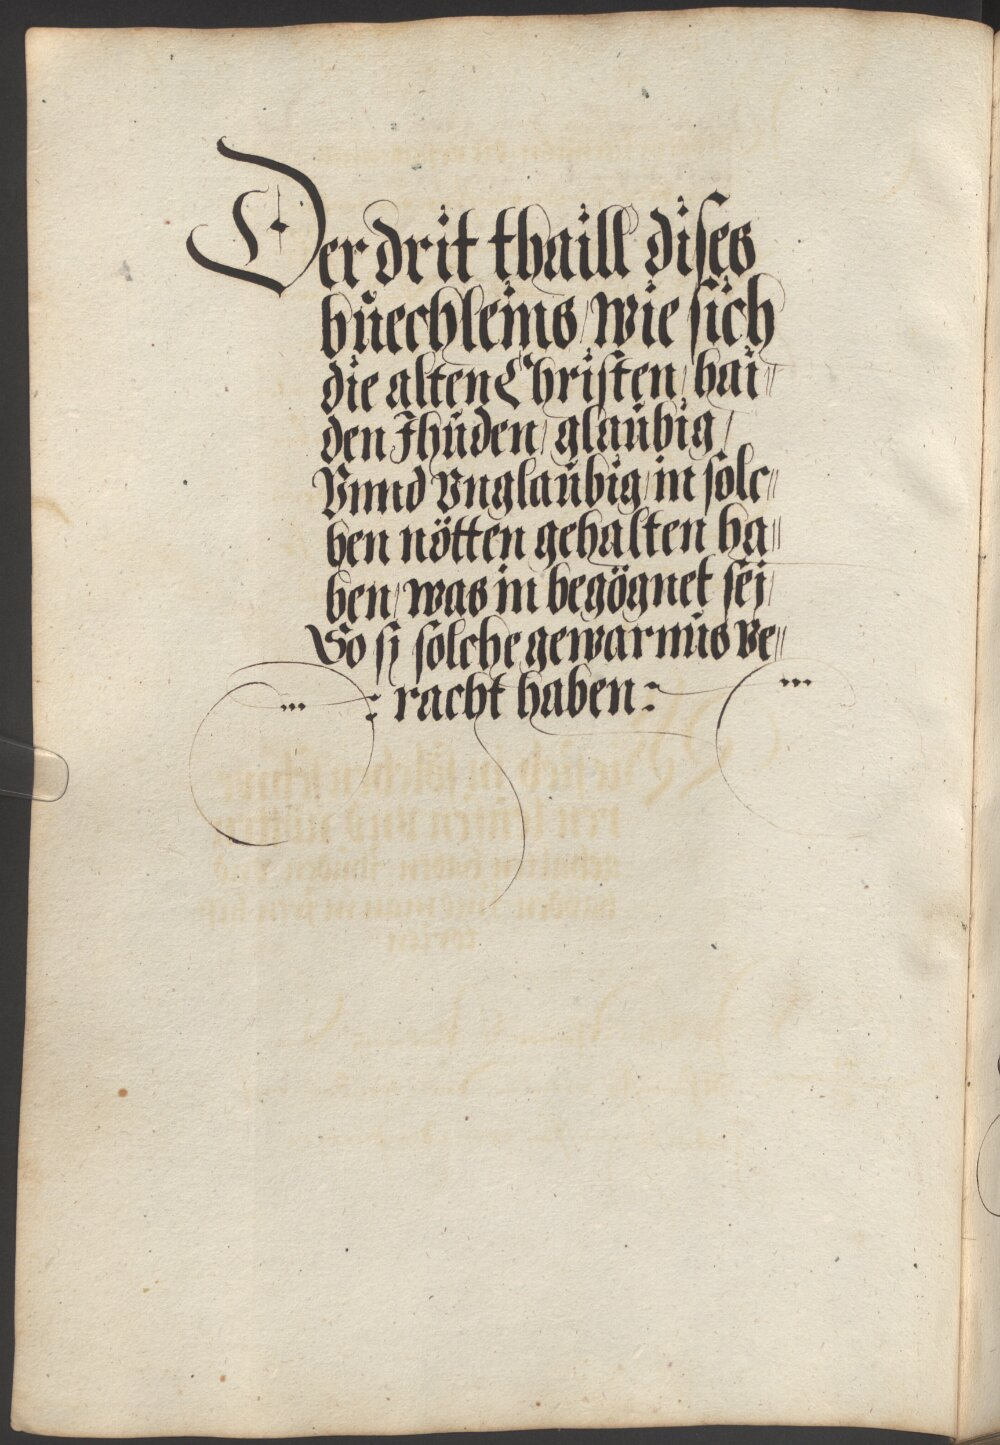 Der drit thaill dises
bůechleins / wie sich
die alten Christen / hai⸗
den Jhůden / glaůbig /
Vnnd Vnglaůbig / in solc⸗
hen nötten gehalten ha⸗
ben / was in begögnet sei /
So sÿ solche gewarnůs ve⸗
racht haben :